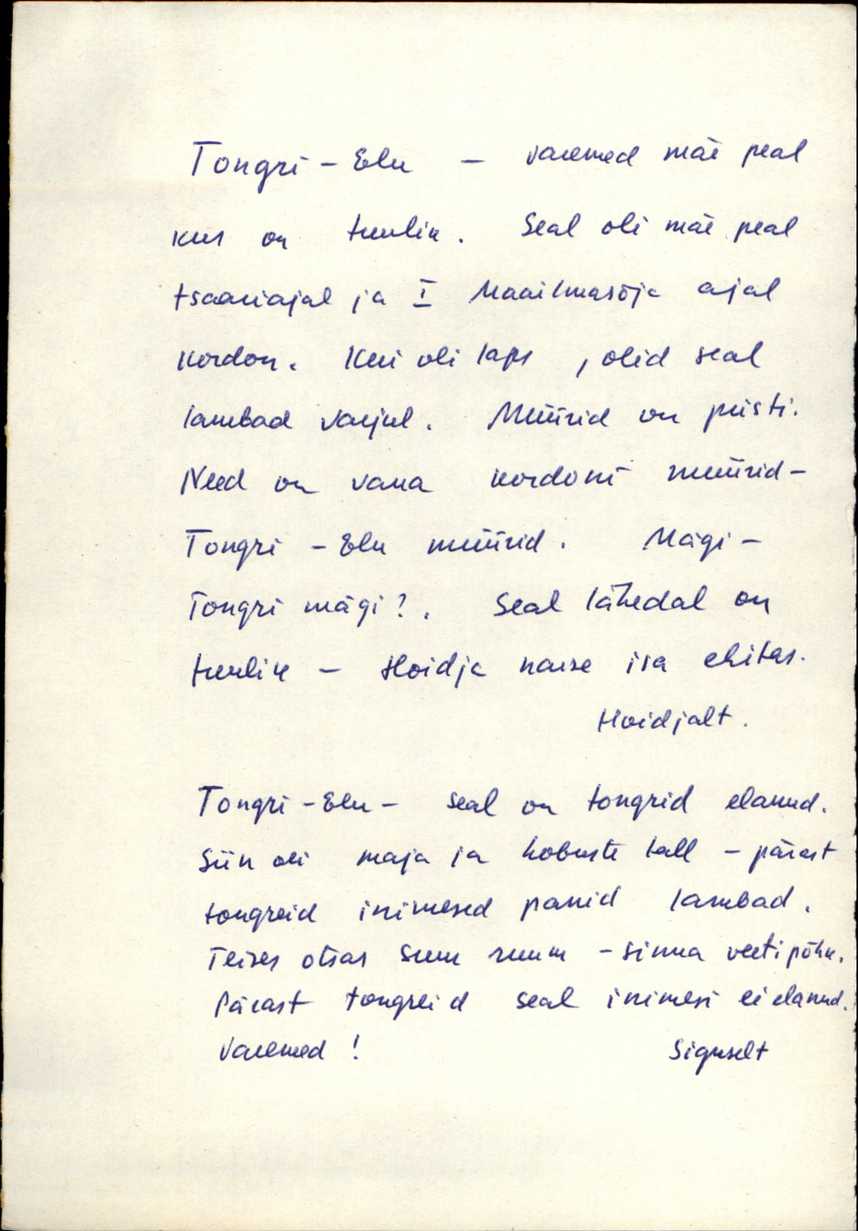 Tongri-Elu – varemed mäe peal
kus on tuulik. Seal oli mäe peal
tsaariajal ja I Maailmasõja ajal
kordon. Kui oli laps, olid seal
lambad varjul. Müürid on püsti.
Need on vana kordoni müürid –
Tongri-Elu müürid. Mägi –
Tongri mägi?. Seal lähedal on
tuulik – Hoidja naise isa ehitas.
Hoidjalt.
Tongri-Elu – seal on tongrid elanud.
Siin oli maja ja hobuste tall – pärast
tongreid inimesed panid lambad.
Teises otsas suur ruum – sinna veeti põhu.
Pärast tongreid seal inimesi ei elanud.
Varemed!